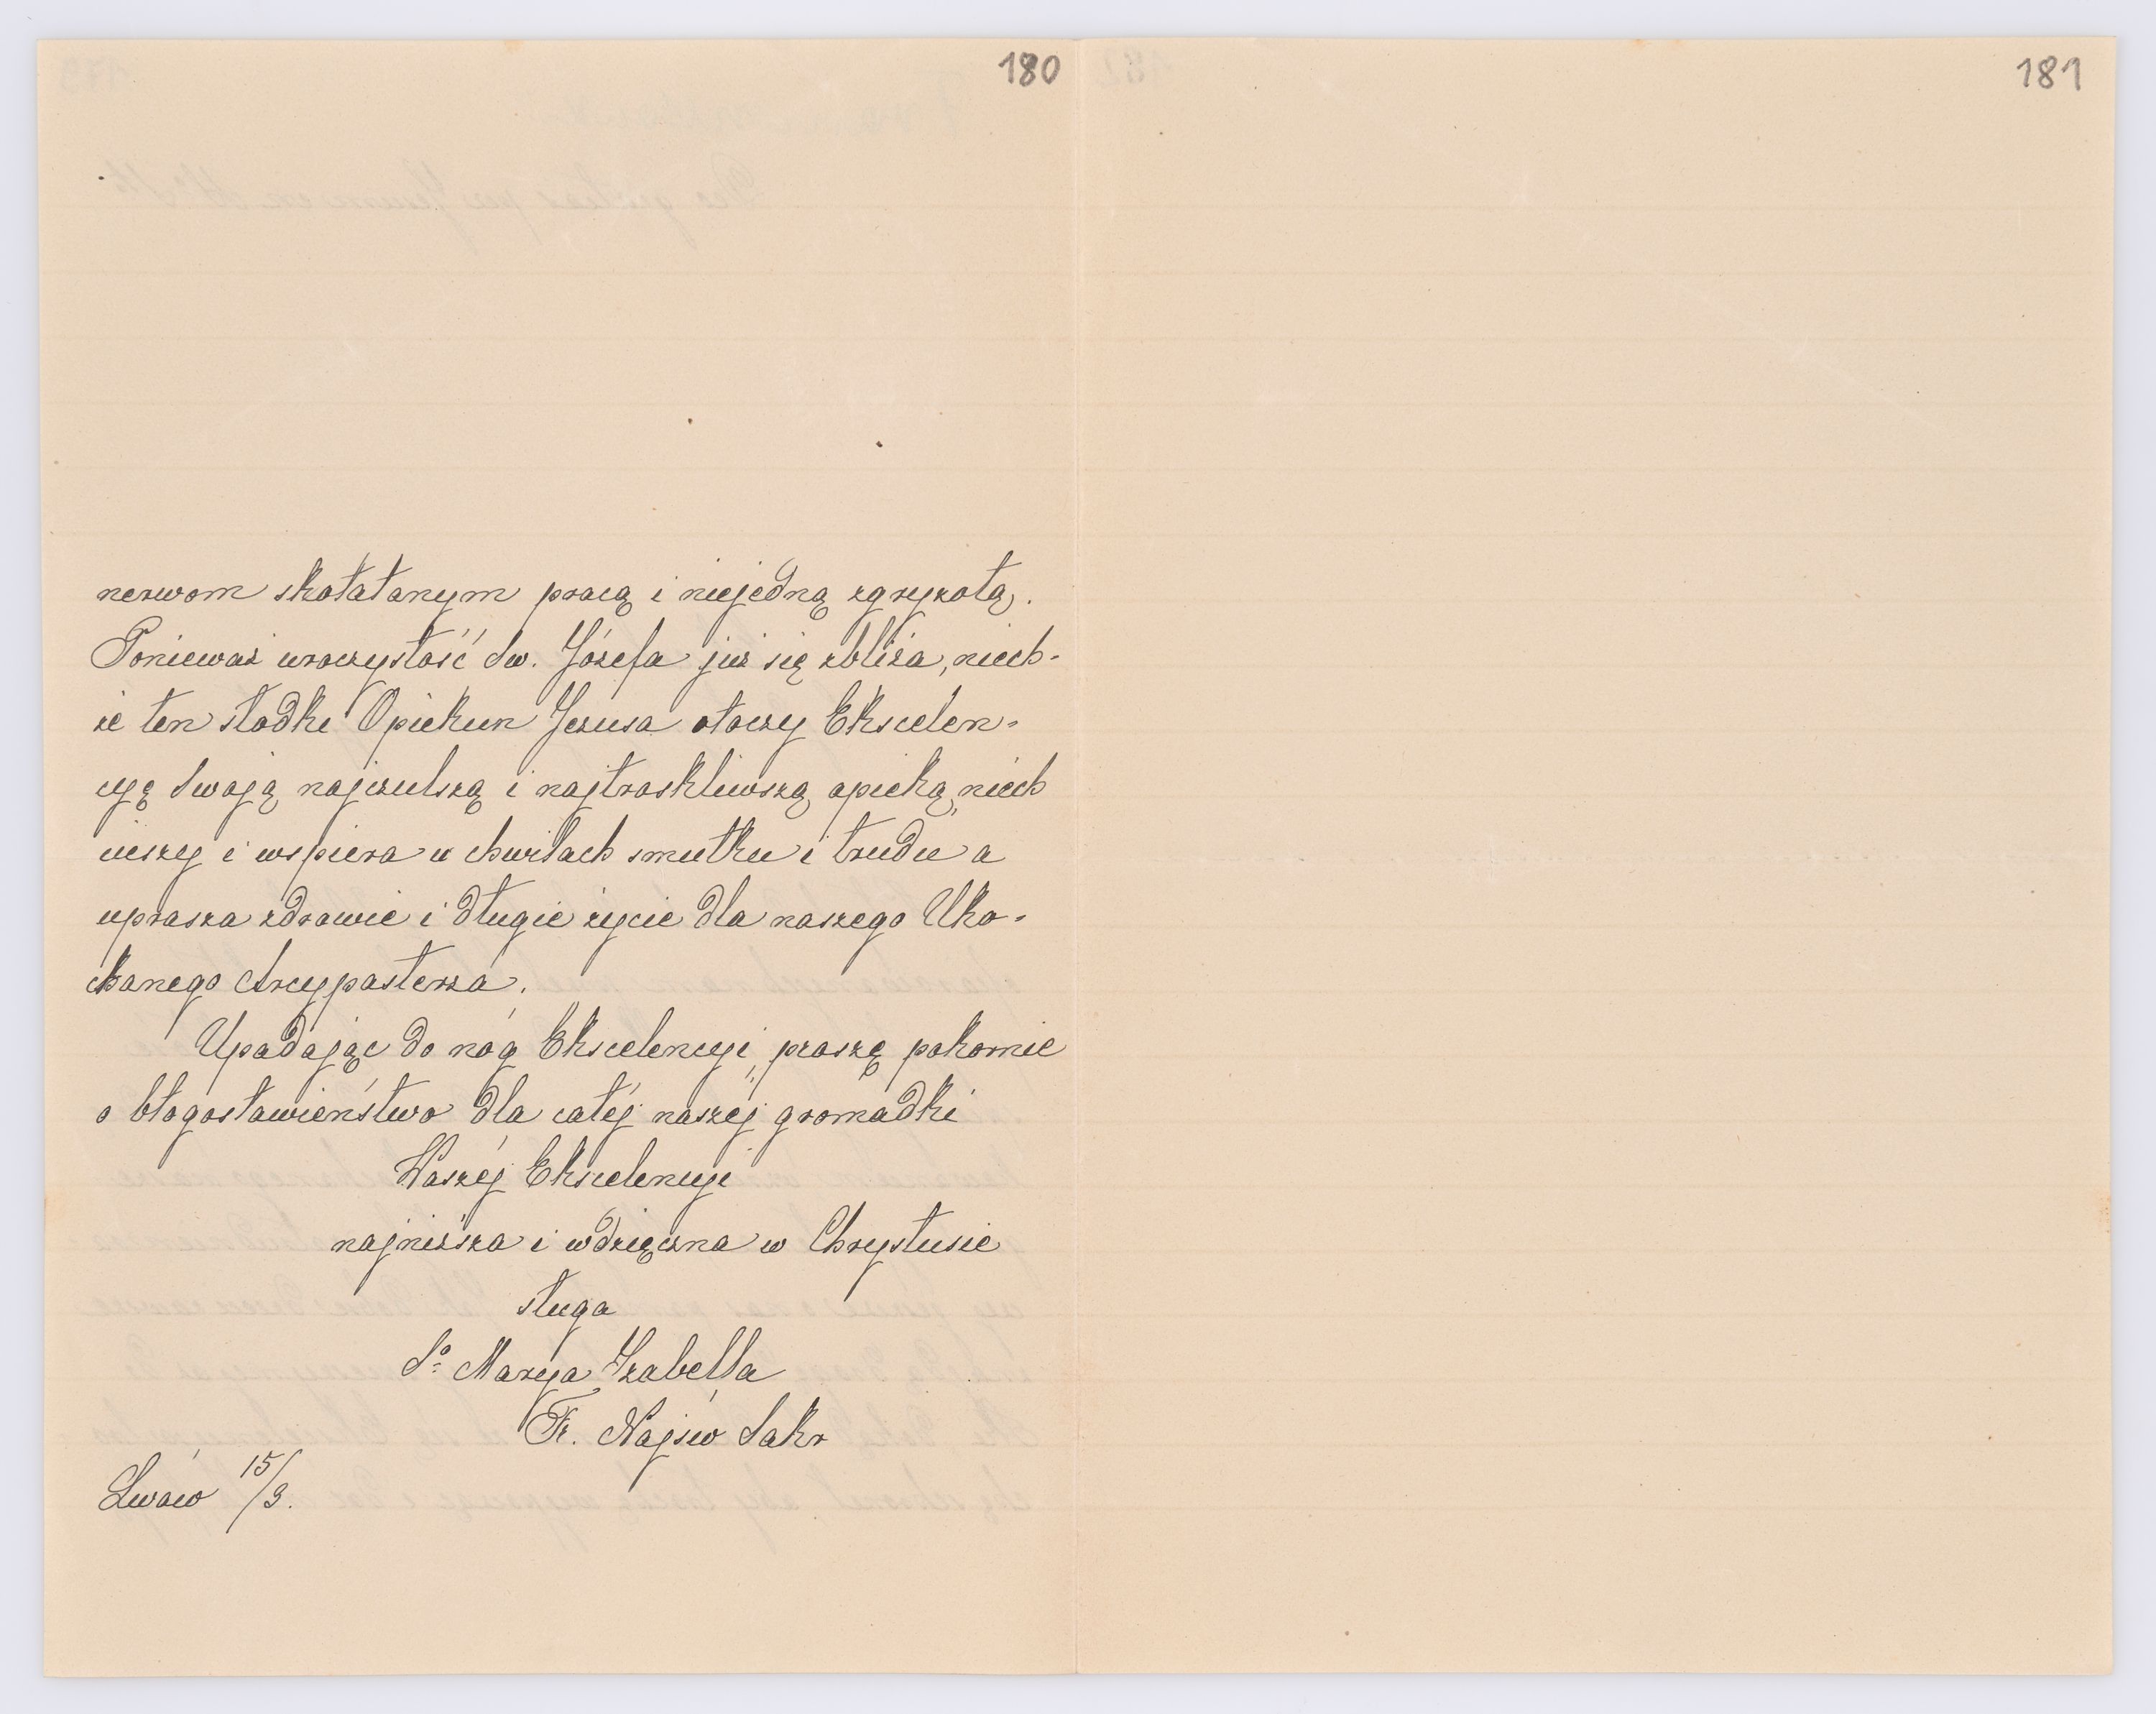 180
181
nerwom skołatanym pracą i niejedną zgryzotą.
Ponieważ uroczystość Św. Józefa już się zbliża, niech-
że ten słodki Opiekun Jezusa otoczy Ekscelen-
cyę Swoją najczulszą i najtroskliwszą opieką, niech
cieszy i wspiera w chwilach smutku i trudu a
uprasza zdrowie i długie życie dla naszego Uko-
chanego Arcypasterza.
Upadając do nóg Ekscelencyi, proszę pokornie
o błogosławieństwo dla całéj naszéj gromadki
Waszéj Ekscelencyi
najniższa i wdzięczna w Chrystusie
sługa
So Marya Izabella
Fr. Najśw Sakr
Lwów 15/3.